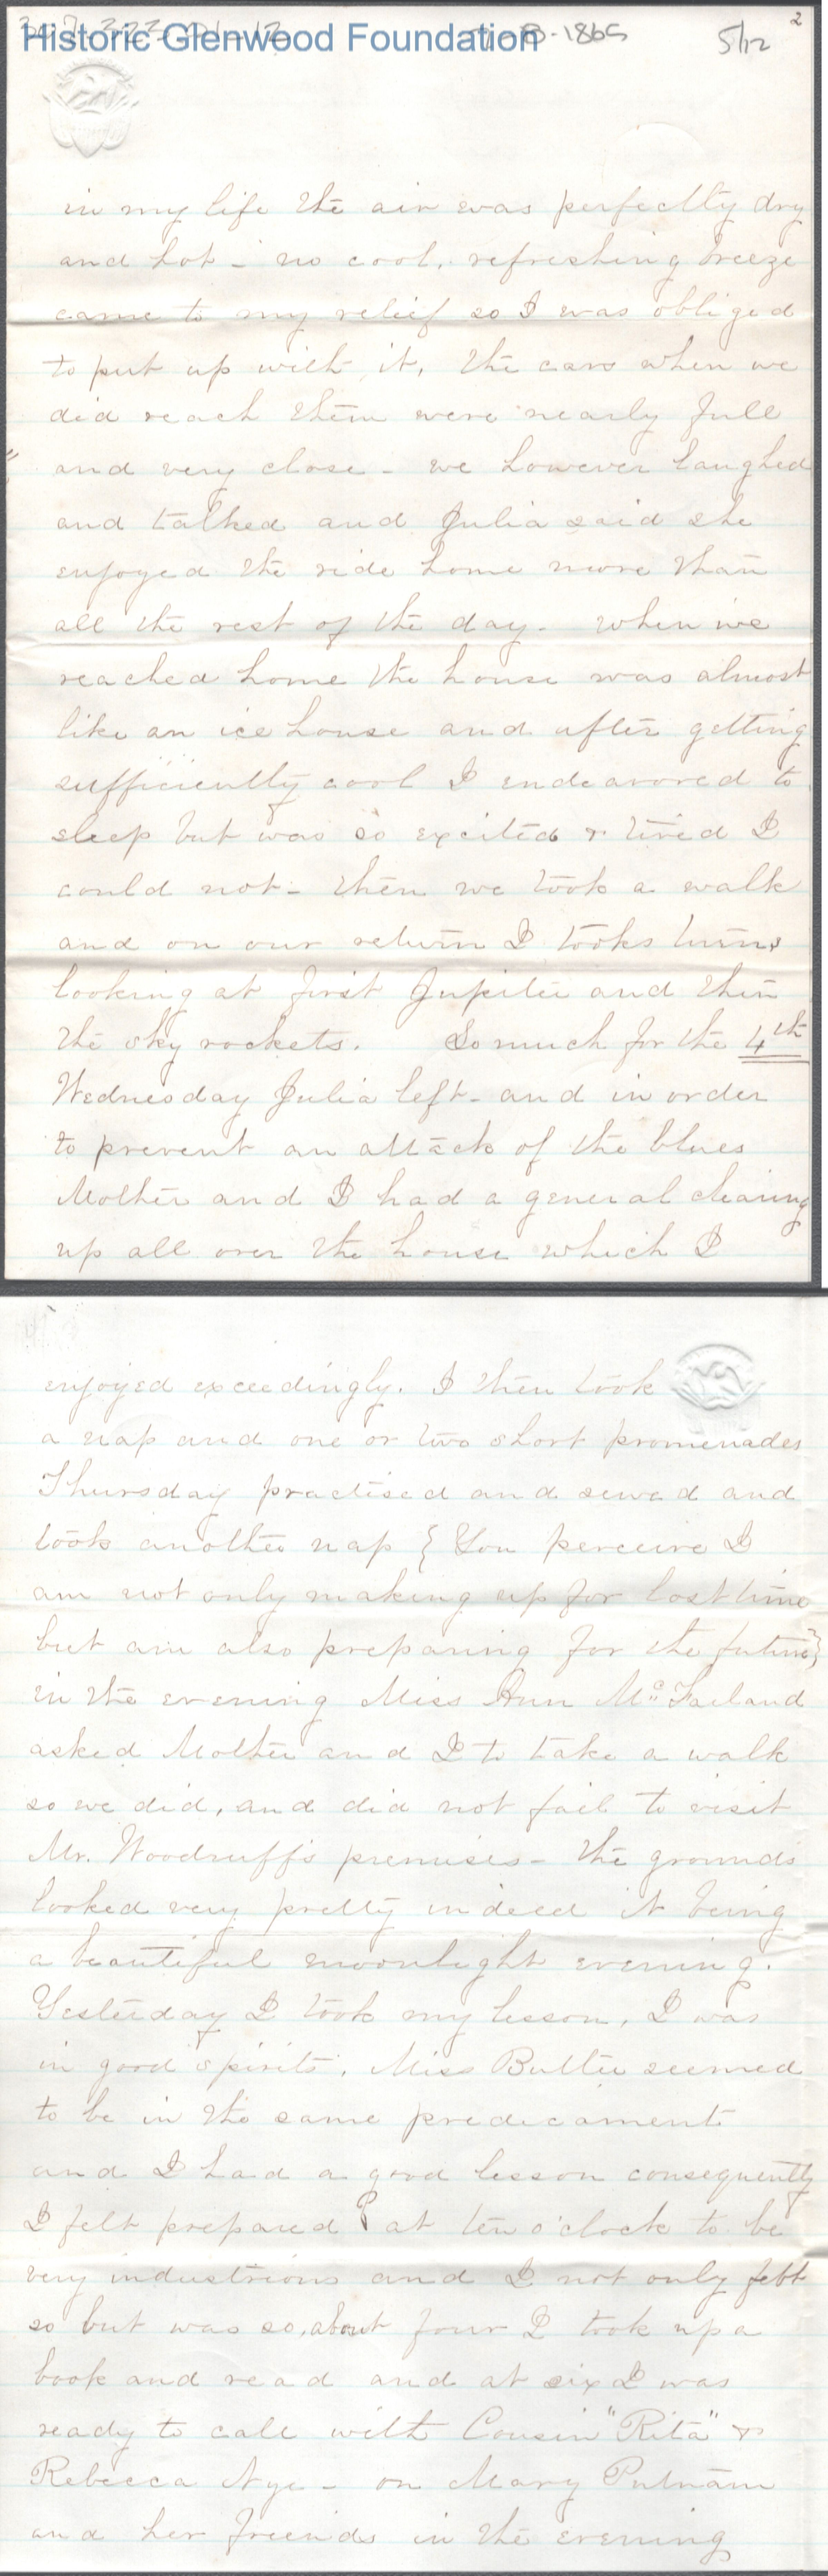 Historic Glenwood Foundation
7-8-1865
5/12
2
in my life the air was perfectly dry
and hot - no cool, refreshing breeze
came to my relief so I was obliged
to put up with it, the cars when we
did reach them were nearly full
and very close - we however laughed
and talked and Julia said she
enjoyed the ride home more than
all the rest of the day - when we
reached home the house was almost
like an ice house and after getting
sufficiently cool I endeavored to
sleep but was so excited & tired I
could not - then we took a walk
and on our return I tooks turns
looking at first Jupiter and then
the sky rockets. So much for the 4th
Wednesday Julia left - and in order
to prevent an attack of the blues
Mother and I had a general clearing
up all over the house which I
enjoyed exceedingly. I then took
a nap and one or two short promenades
Thursday practised and sewed and
took another nap { You perceive I
am not only making up for lost time
but am also preparing for the future}
in the evening Miss Ann Mc Farland
asked Mother and I to take a walk
so we did, and did not fail to visit
Mr. Woodruff's premises - the grounds
looked very pretty indeed it being
a beautiful moonlight evening.
Yesterday I took my lesson, I was
in good spirits, Miss Butler seemed
to be in the same predicament
and I had a good lesson consequently
I felt prepared at ten o'clock to be
very industrious and I not only felt
so but was so, about four I took up a
book and read and at six I was
ready to call with Cousin "Rita" &
Rebecca Nye - on Mary Putnam
and her friends in the evening